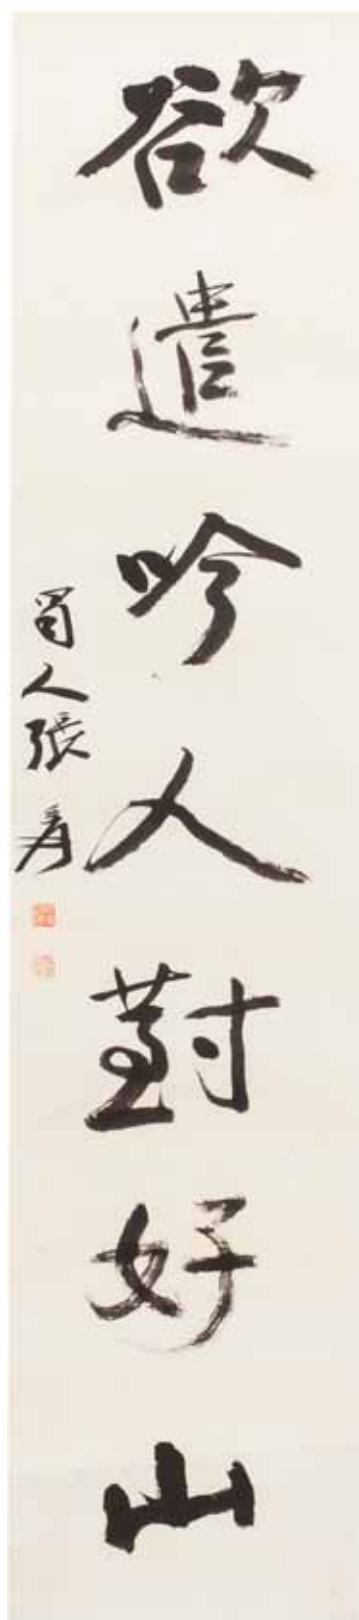 欲遣吟人對好山
蜀人張爰